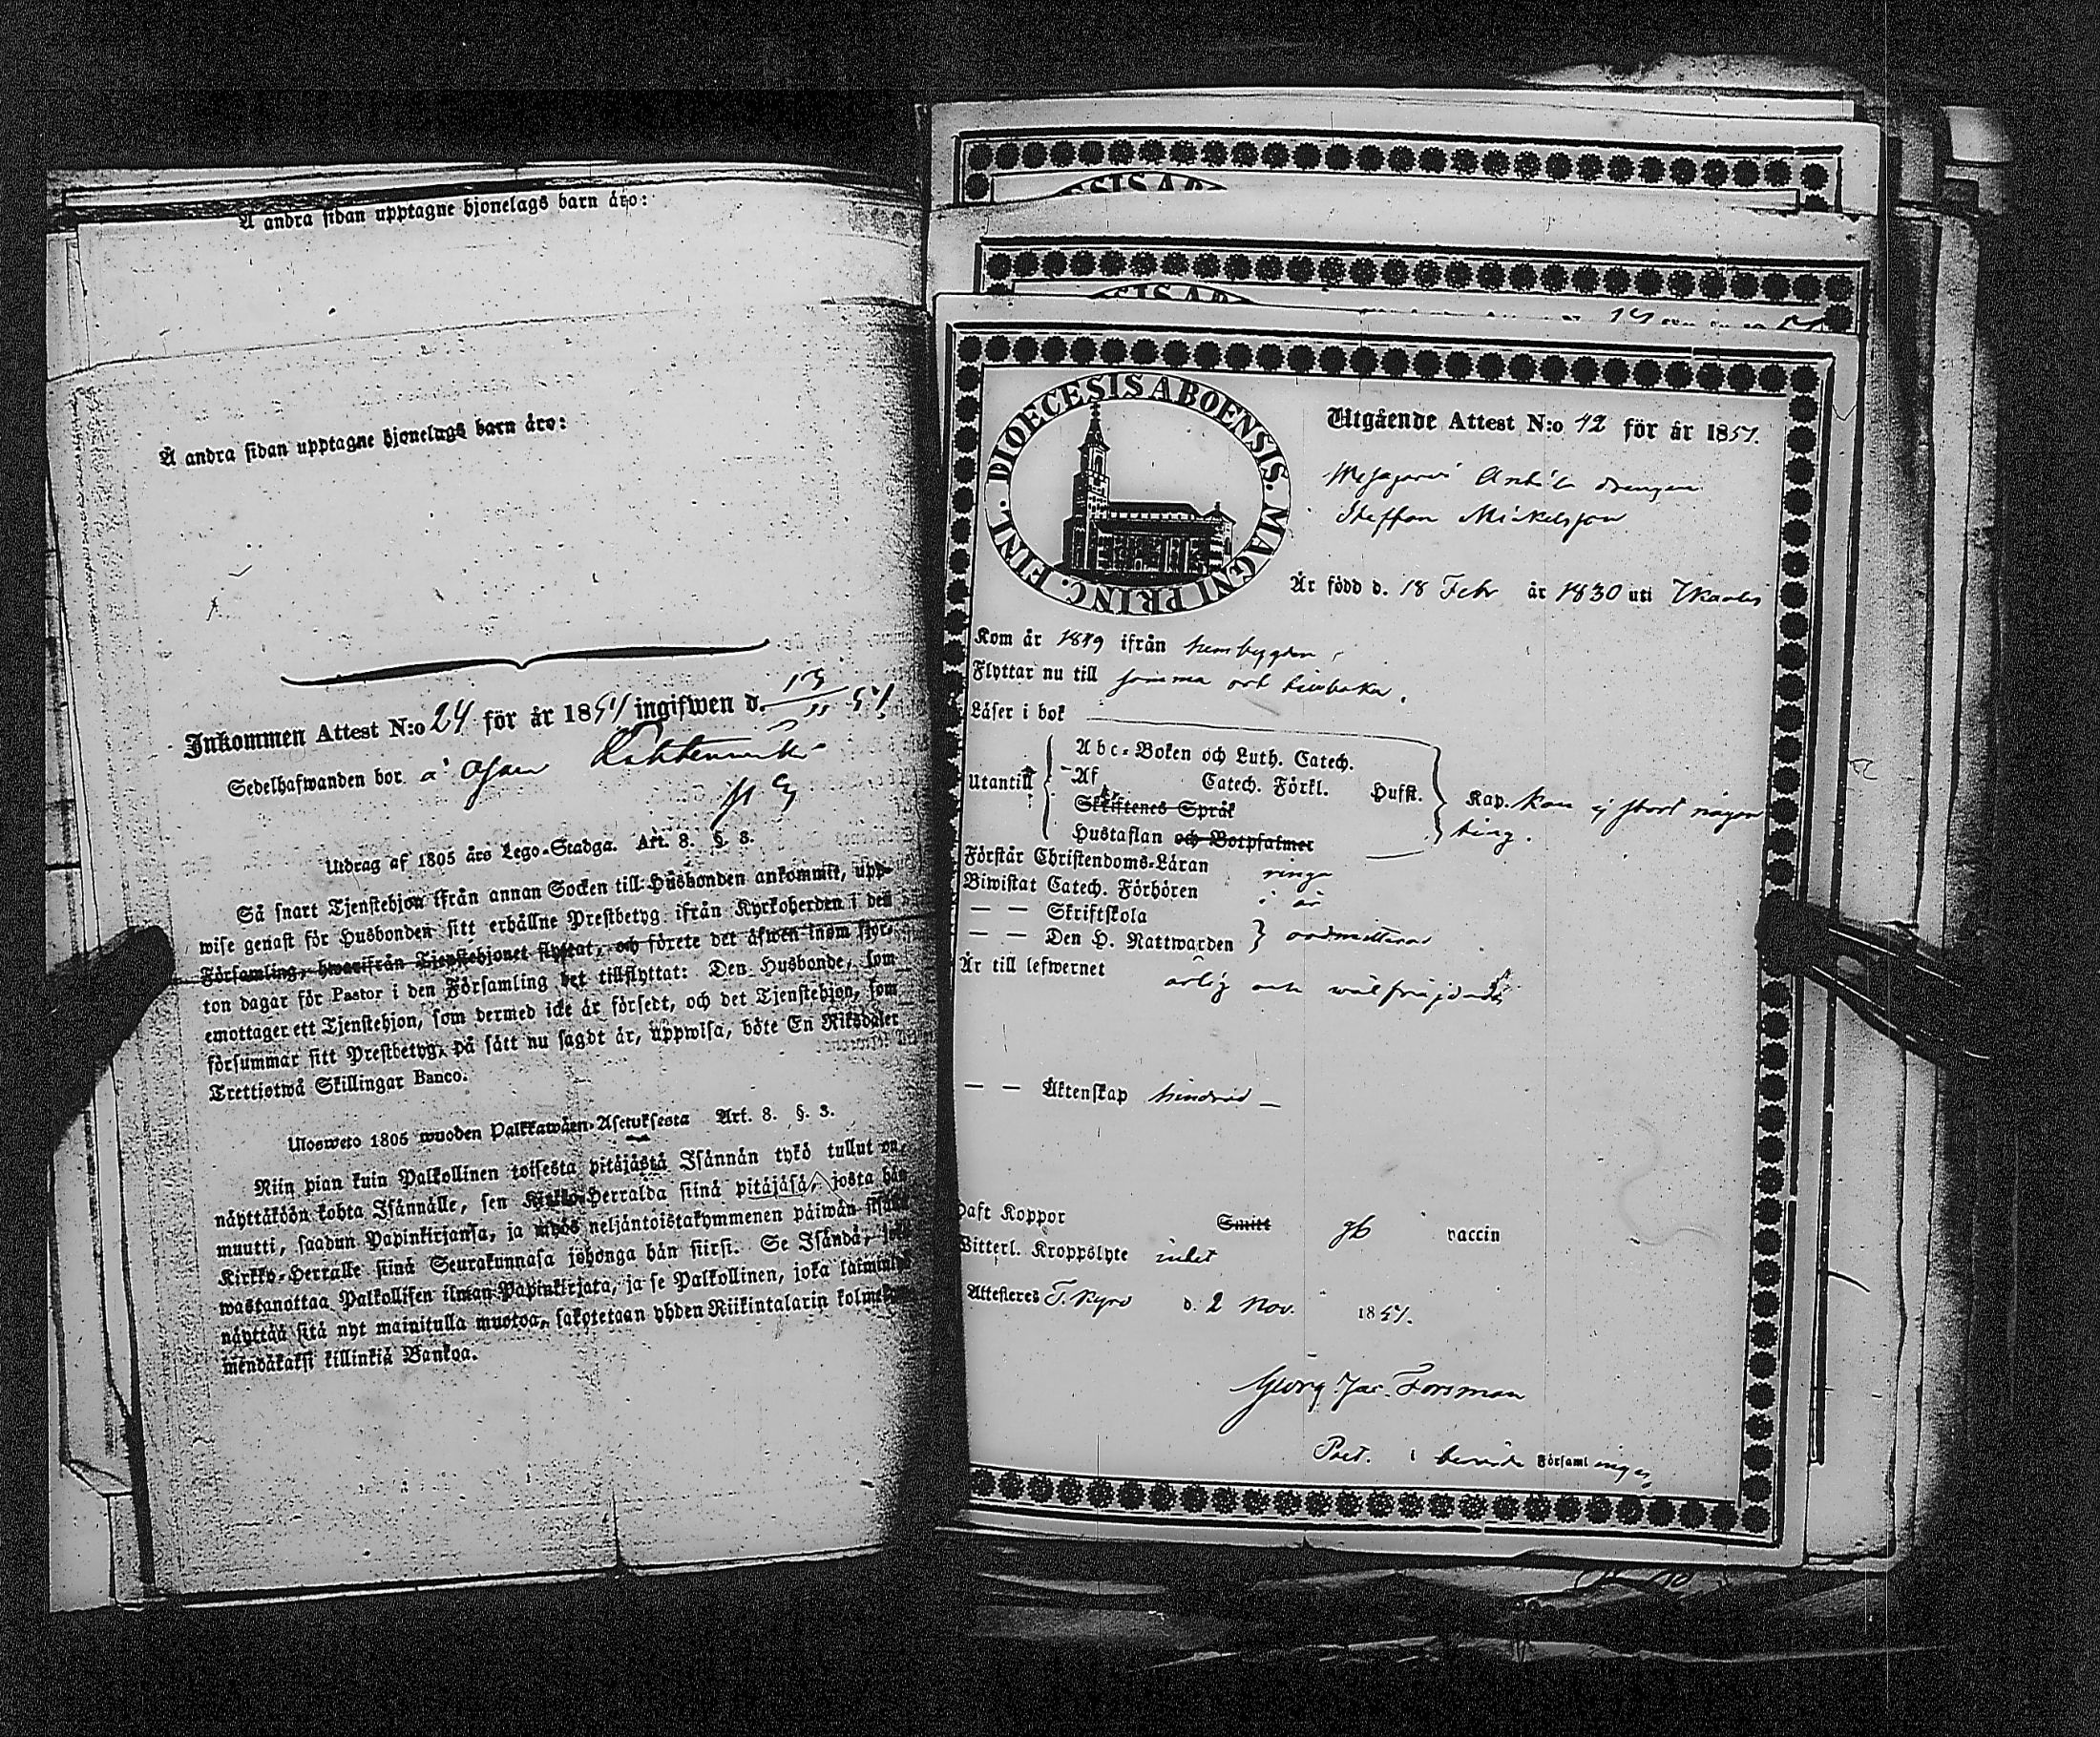 Å andra sidan upptagne hjonelags barn äro:
Å andra sidan upptagne hjonelags barn äro:
Inkommen Attest N:o 24 för år 1851 ingifwen d. 13/11 51
Sedelhafwanden bor a'
Utdrag af 1805 års Lego-Stadga. Art. 8. §. 3.
Så snart Tjenstehjon ifrån annan Socken till Husbonden ankommit, upp-
wise genast för Husbonden sitt erhållne Prestbetyg ifrån Kyrkoherden i den
Församling, hwarifrån Tjenstehjonet flyttat, och förete det äfwen inom fjor-
ton dagar för Pastor i den Församling det tillflyttat: Den Husbonde, som
emottager ett Tjenstehjon, som dermed icke är försedt, och det Tjenstehjon, som
försummar sitt Prestbetyg, på sätt nu sagdt är, uppwisa, böte En Riksdaler
Trettiotwå Skillingar Banco.
Ulosweto 1805 wuoden Palkkawäen-Asetuksesta Art. 8. §. 3.
Niin pian kuin Palkollinen toisesta pitäjästä Isännän tykö tullut on,
näyttäköön kohta Isännälle, sen Kirkko-Herralda siinä pitäjäsä, josta hän
muutti, saadun Papinkirjansa, ja myös neljäntoistakymmenen päiwän sisällä
Kirkko-Herralle siinä Seurakunnasa johonga hän siirsi. Se Isändä, joka
wastanottaa Palkollisen ilman Papinkirjata, ja se Palkollinen, joka laiminlyö
näyttää sitä nyt mainitulla muotoa, sakotetaan yhden Riikintalarin kolmekym-
mendäkaksi killinkiä Bankoa.
DIOECESIS ABOENSIS. MAGNI PRINC. FINL.
Utgående Attest N:o 42 för år 1851.
Anttila drengen
Steffan Mickelsson
Är född d. 18 Febr år 1830 uti Ikalis
Kom år 1849 ifrån hembygden
Flyttar nu till samma ort tillbaka.
Läser i bok
Utantill
Abc-Boken och Luth. Catech.
Af Catech. Förkl. Hufst. Kap. kan ej stort någon
Skriftenes Språk ting.
Hustaflan och Botpsalmer
Förstår Christendoms-Läran ringa
Biwistat Catech. Förhören i år
— — Skriftskola
— — Den H. Nattwarden admitterad
Är till lefwernet ärlig och wälfräjdad
— — Äktenskap hindrad —
Haft Koppor Smitt gb vaccin
Witterl. Kroppslyte intet
Attesteres T. Kyro d. 2 Nov. 1851.
Georg Jac. Forsman
Past. i berörde Församlingen